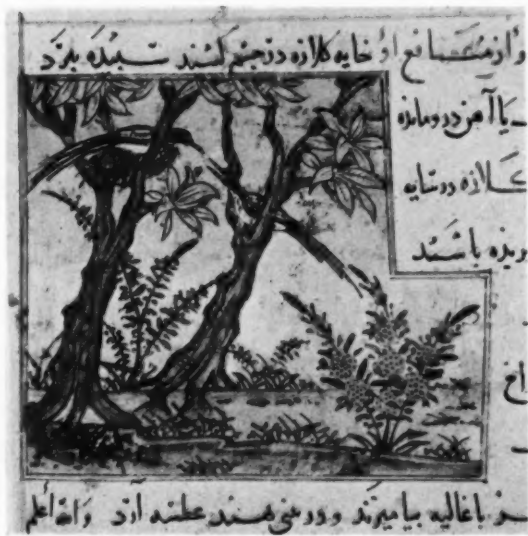 و از منافع او خایه کلازه در چشم کشند سبیده ببرد
یا آهن درو مانده
کلازه در سایه
ریزه باشند
اخ
با غالیه بیامیزند و در بینی دمند عطسه آرد والله أعلم